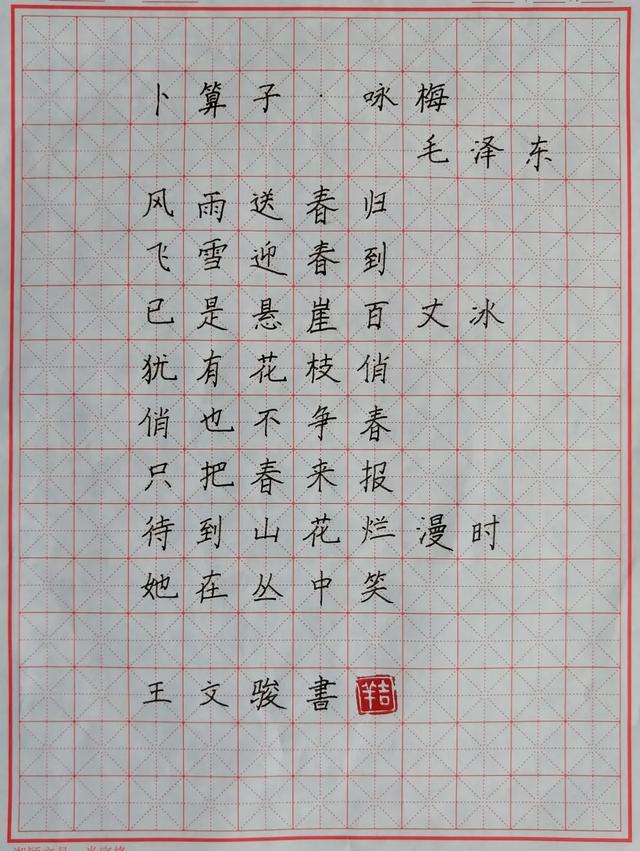 卜算子·咏梅
毛泽东
风雨送春归
飞雪迎春到
已是悬崖百丈冰
犹有花枝俏
俏也不争春
只把春来报
待到山花烂漫时
她在丛中笑
王文骏書